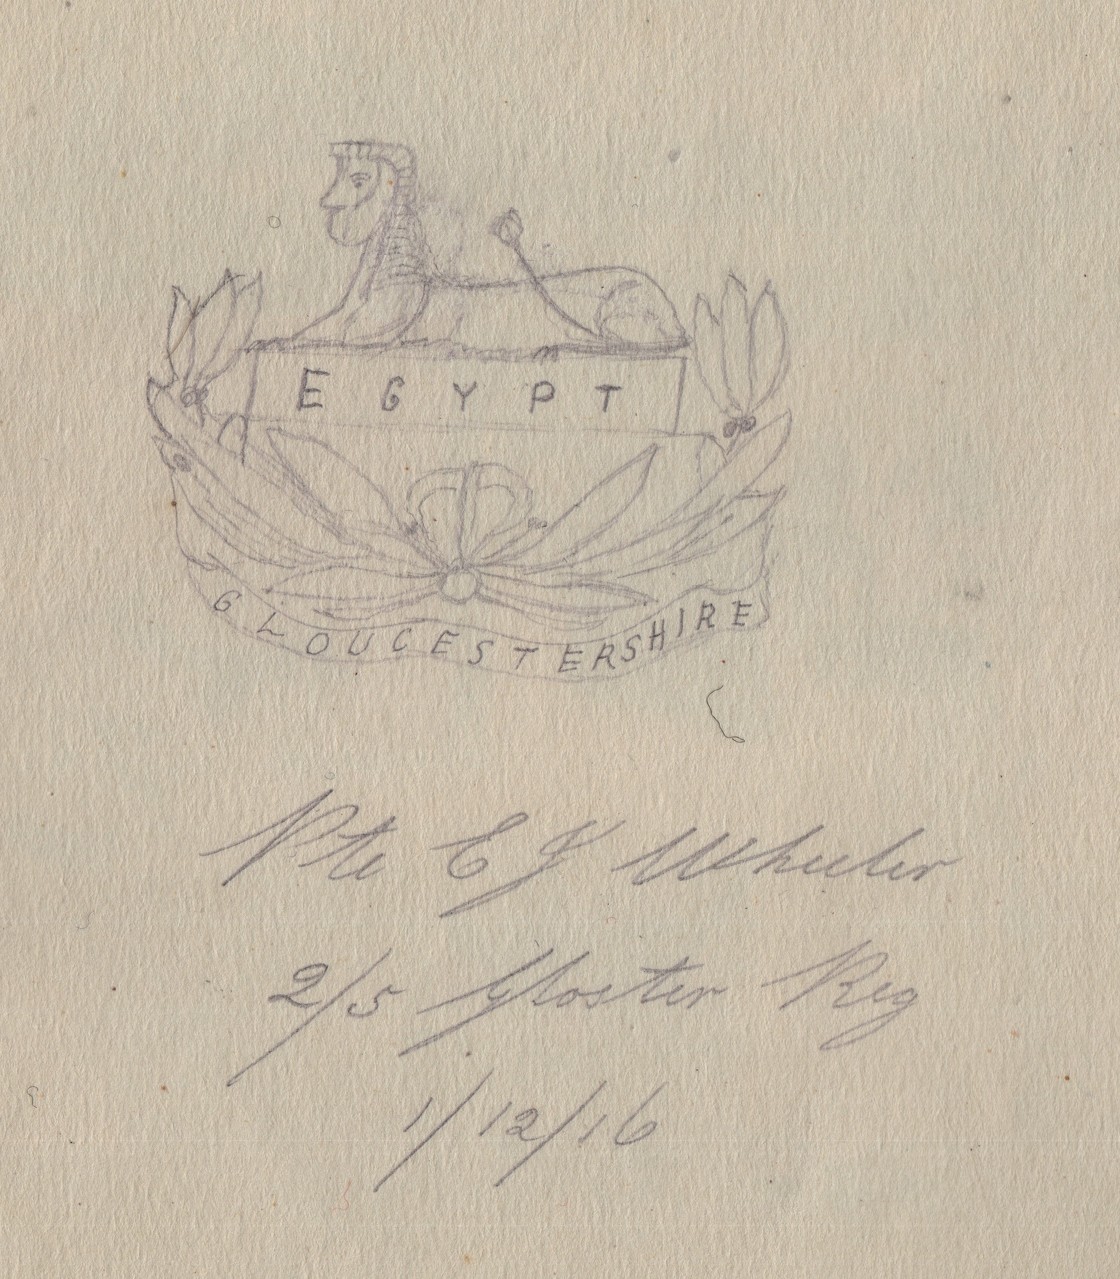 EGYPT
GLOUCESTERSHIRE
Pte E J Wheeler
2/5 Gloster Reg
1/12/16